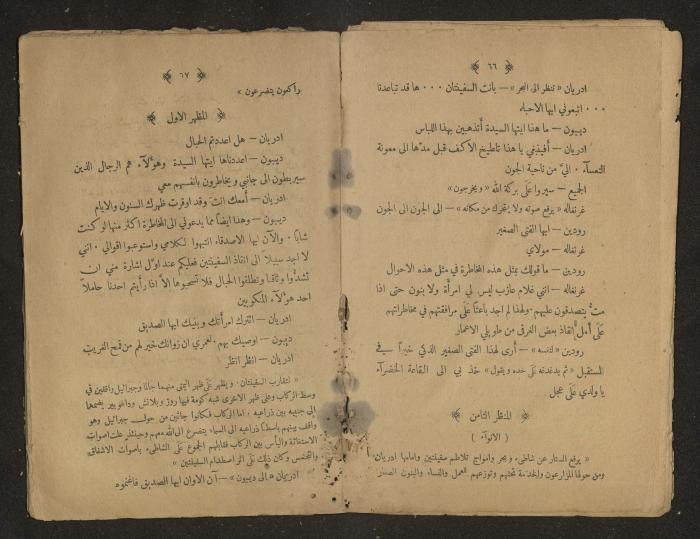 ﴿ ٦٦ ﴾
ادريان « تنظر الى البحر » — بانت السفينتان ٠٠٠ ها قد تباعدتا
٠٠٠ اتبعوني ايها الاحبه
ديبون — ما هذا ايتها السيدة أتذهبين بهذا اللباس
ادريان — أفيذيني يا هذا تلطيخ الأكف قبل مدّها الى معونة
التعساء ٠ اليَّ من ناحية الجون
الجميع — سيروا على بركة الله « ويخرجون »
غرنغاله « يرفع صوته ولا يتحرك من مكانه » — الى الجون الى الجون
رودين — ايها الفتى الصغير
غرنغاله — مولاي
رودين — ما قولك بمثل هذه المخاطرة في مثل هذه الاحوال
غرنغاله — انني غلام عازب ليس لي امرأة ولا بنون حتى اذا
متُّ يتصدقون عليهم ٠ ولهذا لم اجد باعثًا على مرافقتهم في مخاطراتهم
على أمل إنقاذ بعض الغرقى من طويلي الاعمار
رودين « لنفسه » — أرى لهذا الفتى الصغير الذكي خيرًا في
المستقبل « ثم يدغدغه على خده ويقول » خذ بي الى القاعة الخضرآء
يا ولدي على عجل
﴿ المنظر الثامن ﴾
( الانوآء )
« يرفع الستار عن شاطىء وبحر وامواج تلاطم سفينتين وامامها ادريان
ومن حولها المزارعون والخدمة تحثهم وتوزعهم للعمل والنساء والبنون الصغار
﴿ ٦٧ ﴾
راكعون يتضرعون »
﴿ المظهر الاول ﴾
ادريان — هل اعددتم الحبال
ديبون — اعددناها ايتها السيدة وهؤلآء هم الرجال الذين
سيربطون الى جانبي ويخاطرون بانفسهم معي
ادريان — أمعك انت وقد اوقرت ظهرك السنون والايام
ديبون — وهذا ايضًا مما يدعوني الى المخاطرة اكثر منها لو كنت
شابًا ٠ والآن ايها الاصدقاء انتبهوا لكلامي واستوعبوا اقوالي ٠ انني
لا اجد سبيلا الى انقاذ السفينتين فعليكم عند اوّل اشارة مني ان
تشدُّوا وثاقنا وتطلقوا الحبال فلا تسحبوها الاَّ اذا رأيتم احدنا حاملاً
احد هؤلآء المنكوبين
ادريان — اتترك امرأتك وبنيك ايها الصديق
ديبون — اوصيك بهم ٠ لعمري ان زوانك خير لهم من قمح الغريب
ادريان — انظر انظر
« لتقارب السفينتان ٠ ويظهر على ظهر اليتي منهما جالما وجبرائيل واقفين في
وسط الركاب وعلى ظهر الاخرى شبه كومة فيها روز وبلانش وداغوبير يضمهما
الى جنبيه بين ذراعيه ٠ اما الركاب فكانوا جاثين من حول جبرائيل وهو
واقف بينهم باسطًا ذراعيه الى السماء يتضرع الى الله معهم وحينئذٍ علت اصوات
الاستغاثة واليأس بين الركاب فقابلهم الجموع على الشاطىء باصوات الاشفاق
والتحمس وكان ذلك على اثر اصطدام السفينتين »
ادريان « الى ديبون » — آن الاوان ايها الصديق فاغنموه